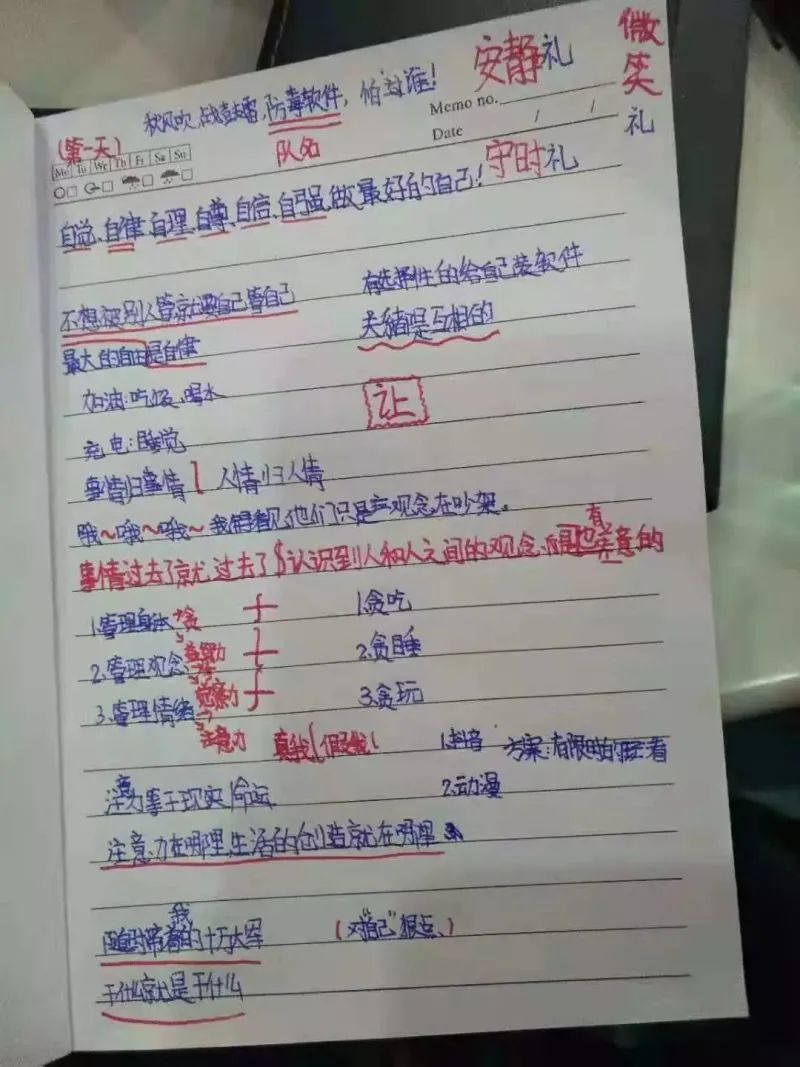 微笑礼
安静礼
秋风吹,战鼓雷,防毒软件,怕过谁!
Memo no.
(第一天)
队名
Date / /
Mo Tu We Th Fr Sa Su
守时礼
自觉、自律、自理、自尊、自信、自强、做最好的自己!
有选择性的给自己装软件
不想被别人管就要自己管自己
关系是互相的
最大的自由是自律
加油:吃饭、喝水
让
充电:睡觉
事情归事情 人情归人情
哦~哦~哦~我看见他们只是两观念在吵架。
事情过去了就过去了 认识到人和人之间的观念是有差的
1.管理身体 贪
1.贪吃
2.管理观念 觉察力
2.贪睡
3.管理情绪 觉察力
3.贪玩
注意力
真我 假我
1.抖音 方案:有限时间看
2.动漫
注意力等于现实命运
注意力在哪里,生活的创造就在哪里
随时带着我的十万大军 (对"自己"狠点、)
干什么就是干什么